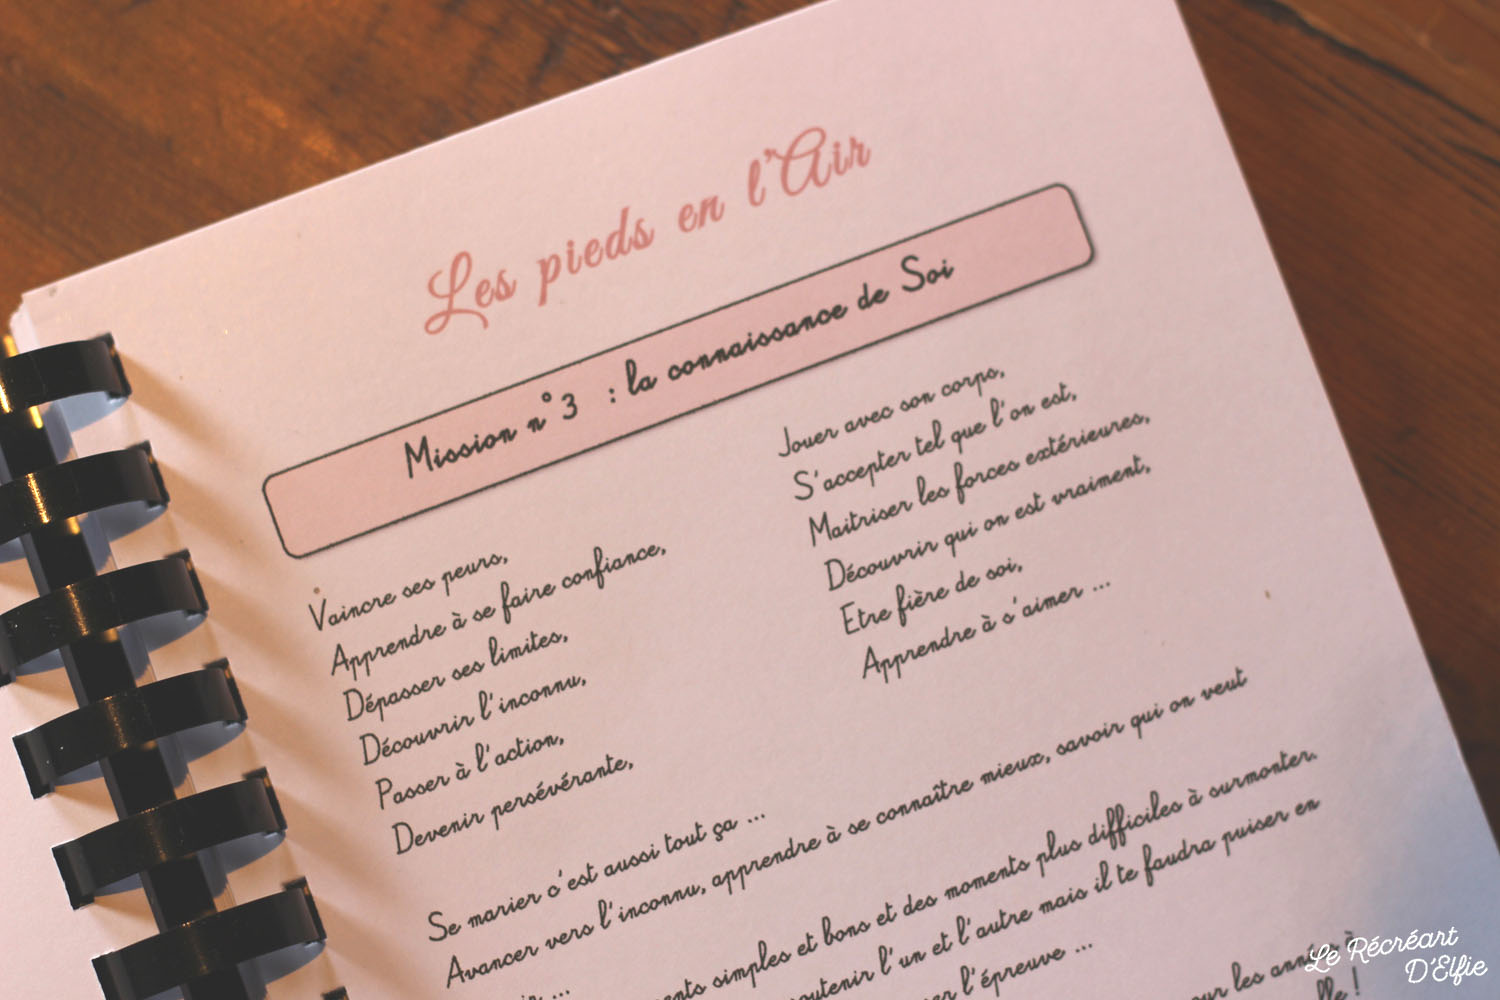 Les pieds en l'Air
Mission n°3 : la connaissance de Soi
Vaincre ses peurs,
Apprendre à se faire confiance,
Dépasser ses limites,
Découvrir l'inconnu,
Passer à l'action,
Devenir persévérante,
Jouer avec son corps,
S'accepter tel que l'on est,
Maitriser les forces extérieures,
Découvrir qui on est vraiment,
Etre fière de soi,
Apprendre à s'aimer ...
Se marier c'est aussi tout ça ...
Avancer vers l'inconnu, apprendre à se connaître mieux, savoir qui on veut
...
simples et bons et des moments plus difficiles à surmonter.
l'un et l'autre mais il te faudra puiser en
l'épreuve ...
les
!
Le Récréart
D'Elfie